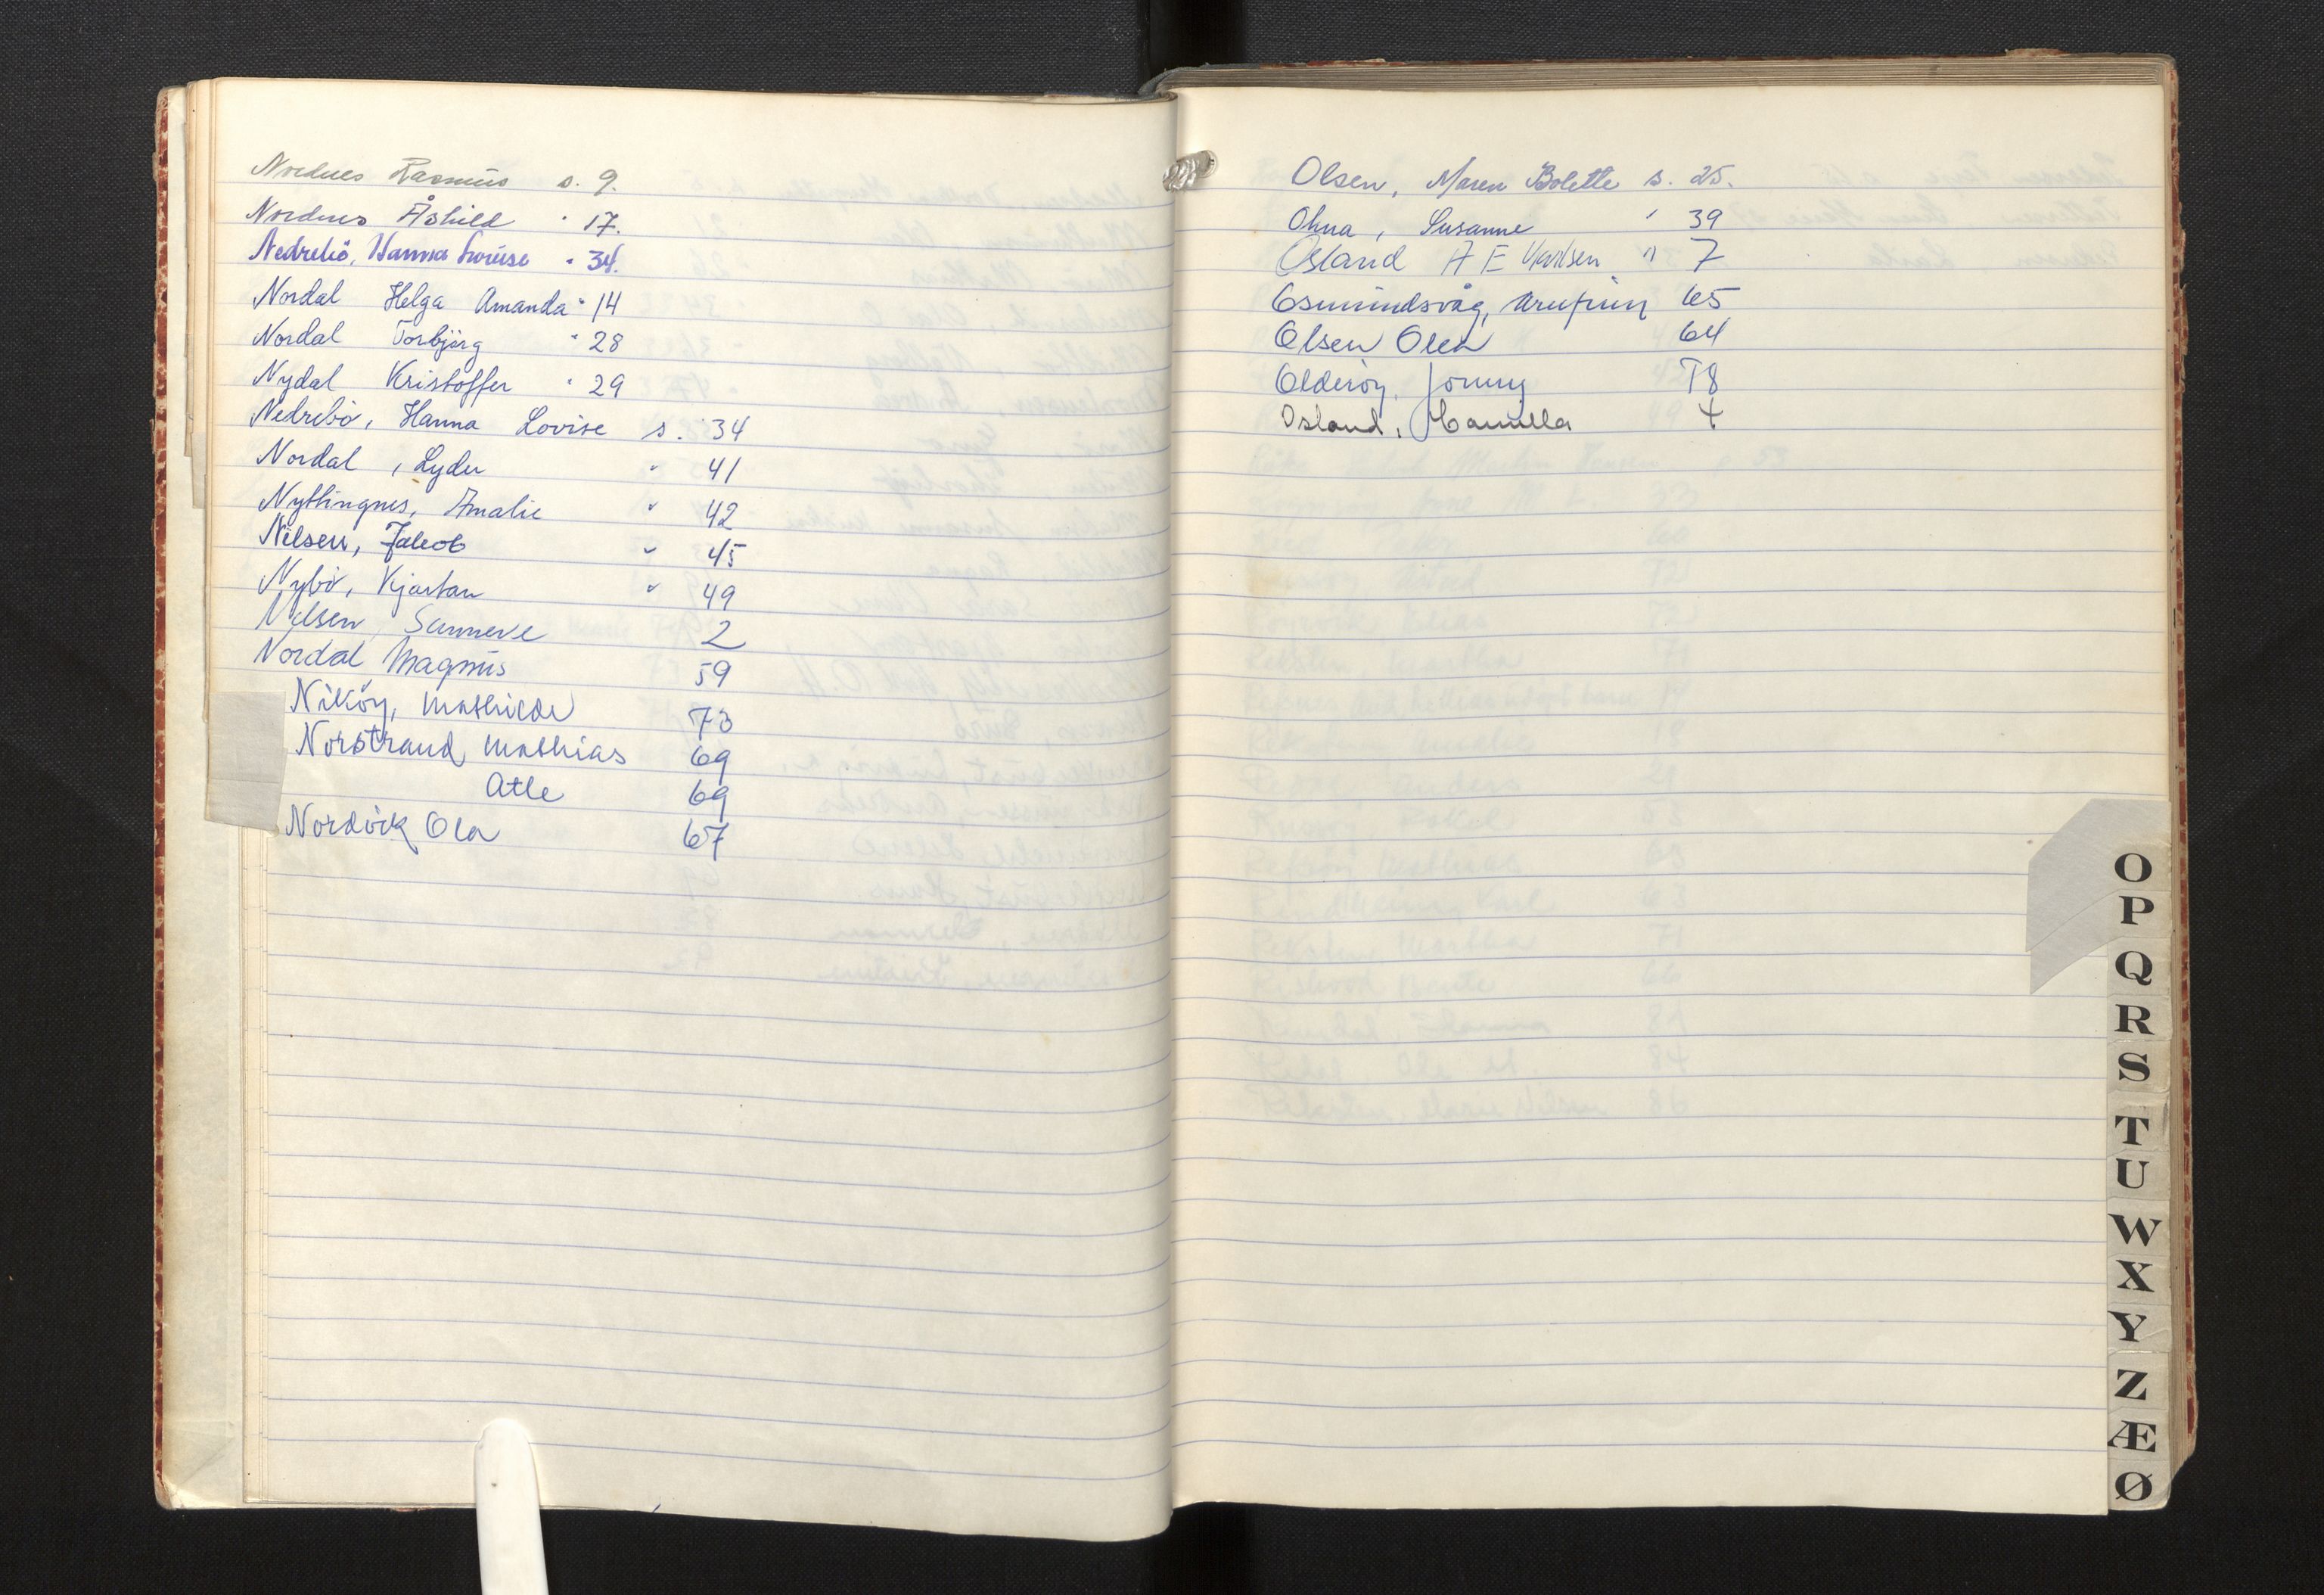 Nordnes Rasmus s. 9.
Nordnes Åshild " 17.
Nedrebö, Hanna Lovise " 34.
Nordal Helga Amanda " 14
Nordal Torbjörg " 28
Nydal Kristoffer " 29
Nedrebö, Hanna Lovise s. 34
Nordal, Lyder " 41
Nyttingnes, Amalie " 42
Nilsen, Jakob " 45
Nybö, Kjartan " 49
Nilsen, Sunneve 2
Nordal Magnus 59
Niköy, Mathilde 73
Norstrand Mathias 69
Atle 69
Nordvik Ola 67
Olsen, Maren Bolette s. 25.
Ohna, Susanne " 39
Osland A E " 7
Osmundsvåg, Arnfinn 65
Olsen Olea 64
Olderöy, Jonny 78
Osland, Hamilla 4
O
P
Q
R
S
T
U
W
X
Y
Z
Æ
Ø